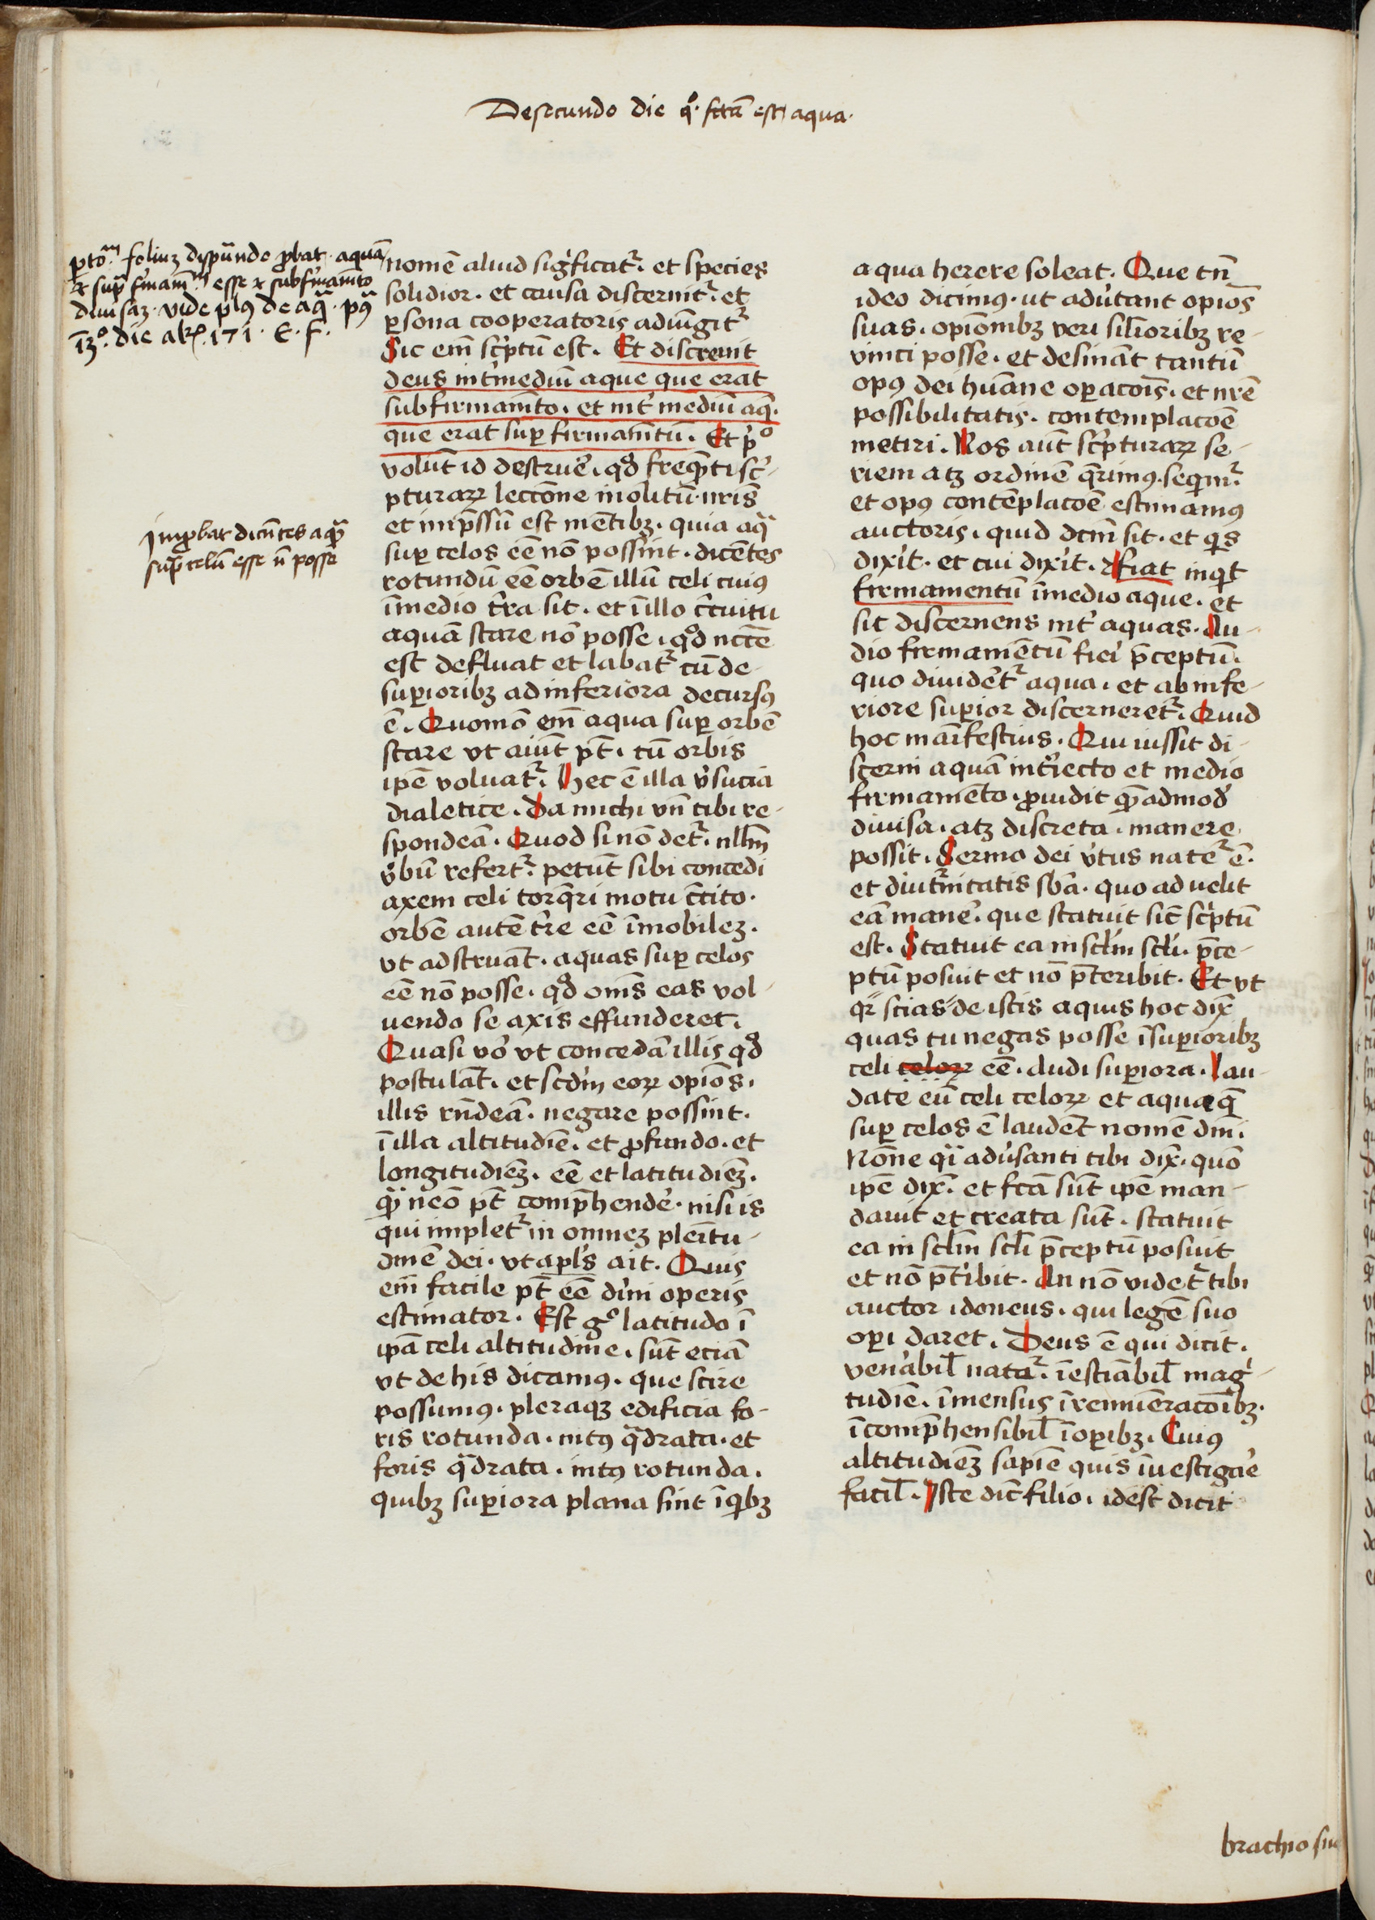 De secundo die q°. fcta est aqua.
nomē aliud sigficat᷑. et species
solidior. et causa discernit᷑. et
ꝑsona cooperatoris adiūgit᷑
Sic em̄ scptū est. Et discreuit
deus int̓ mediū aque que erat
sub firmam̄to. et int̓ mediū aq̄.
que erat suꝑ firmam̄tū. Et p̓°
volūt id destrue̓. qd̓ freq̄nti sc̓-
pturaꝝ lecc̄one inolitū nr̄is
et imp̄ssū est mētibꝫ. quia aq̄
suꝑ celos eē nō possint. dicētes
rotundū eē orbē illū celi cuiꝰ
ī medio t̓ra sit. et ī illo c̓cuitu
aquā stare nō posse. qd̓ nccē
est defluat et labat᷑ cū de-
suꝑioribꝫ ad inferiora decursꝰ
ē. Quomō em̄ aqua suꝑ orbē
stare vt aiūt pt̄. cū orbis
ipē voluat᷑. Hec ē illa v̓sucia
dialetice. Da michi vn̄ tibi re-
spondeā. Quod si nō det᷑. nllm̄
v̓bū refert᷑. petūt sibi concedi
axem celi torq̄ri motu c̄cito.
orbē autē t̓re eē īmobilez.
vt adstruāt. aquas suꝑ celos
eē nō posse. qd̓ oms̄ eas vol-
uendo se axis effunderet.
Quasi v̓o vt concedā illis qd̓
postulāt. et scd̓m eoꝝ opiōs.
illis rn̄deā. negare possint.
ī illa altitudīe. et ꝓfundo. et
longitudīez. eē et latitudīez.
qā neō pt̄ comp̄hende̓. nisi is
qui implet᷑ in omnez plēitu-
dinē dei. vt apl̓s ait. Quis
em̄ facile pt̄ eē diīn operis
estimator. Est g° latitudo ī
ipā celi altitudine. sūt eciā
vt de his dicamꝰ. que scire
possumꝰ. pleraqꝫ edificia fo-
ris rotunda. intꝰ q̄drata. et
foris q̄drata. intꝰ rotunda.
quibꝫ suꝑiora plana sint ī q̓bꝫ
aqua herere soleat. Que tn̄
ideo dicimꝰ. ut adūtant opiōs
suas. opiōnibꝫ veri sil̓ioribꝫ re-
vinci posse. et desināt tantū
opꝰ dei hūane oꝑacōis. et nr̄e
possibilitatis. contemplacōe
metiri. Nos aūt scpturaꝝ se-
riem atqꝫ ordinē q̄rimꝰ. seqm᷑
et opꝰ contēplacōe estimamꝰ
auctoris. quid dcm̄ sit. et q̓s
dixit. et cui dixit. Fiat inq̓t
firmamentū ī medio aque. et
sit discernens int̓ aquas. Au-
dio firmamētū fiei̓ p̄ceptū.
quo diuide̓t᷑ aqua. et ab infe-
riore suꝑior discerneret᷑. Quid
hoc manīfestius. Qui iussit di-
scerni aquā int̓iecto et medio
firmamēto. ꝓuidit q̄admod̓
diuisa. atqꝫ discreta. manere
possit. Sermo dei v̓tus nate᷑ ē.
et diut̓nitatis sb̄a. quo ad uelit
eā mane̓. que statuit sic̄ scptū
est. Statuit ea in sclm̄ scli. p̄ce-
ptū posuit et nō p̄teribit. Et vt
qr̄ scias de istis aquis hoc dix̄
quas tu negas posse ī suꝑioribꝫ
celi celoꝝ eē. Audi suꝑiora. Lau-
date eū celi celoꝝ et aqua q̄
suꝑ celos ē laudēt nomē dn̄i.
Nōne q̓ adu̓santi tibi dix̄. quō
ipē dix̄. et fcā sūt ipē man-
dauit et creata sūt. statuit
ea in sclm̄ scli p̄ceptū posuit
et nō p̄t̓ibit. An nō videt᷑ tibi
auctor idoneus. qui legē suo
oꝑi daret. Deus ē qui dicit.
ven̓abil̄ nata᷑. īestīabil̄ mag-
tudīe. īmensus ī remūeracōibꝫ.
īcomp̄hensibil̄ ī oꝑibꝫ. Cuiꝰ
altitudīez sapīe quis īuestiga̓e
facil̄. Iste dic̄ filio. id est dicit
Improbat dicētes aq̄
sup̄ celū esse n̄ posse
brachio su